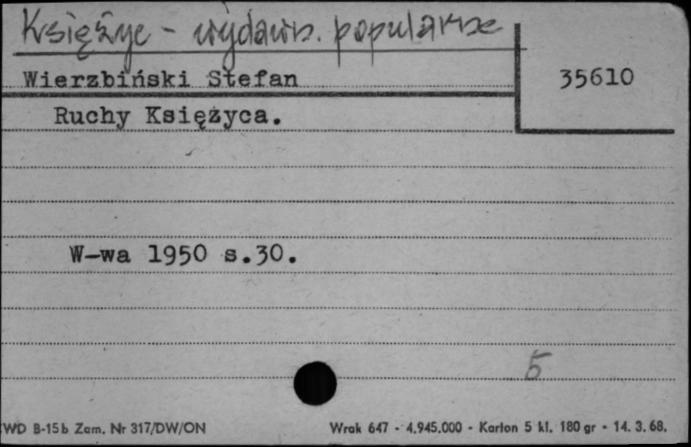 Księżyc - wydawn. popularne
Wierzbiński Stefan
35610
Ruchy Księżyca.
W-wa 1950 s.30.
5
WD B-15b Zam. Nr 317/DW/ON
Wrak 647 - 4.945.000 - Karton 5 kl. 180 gr - 14. 3. 68.